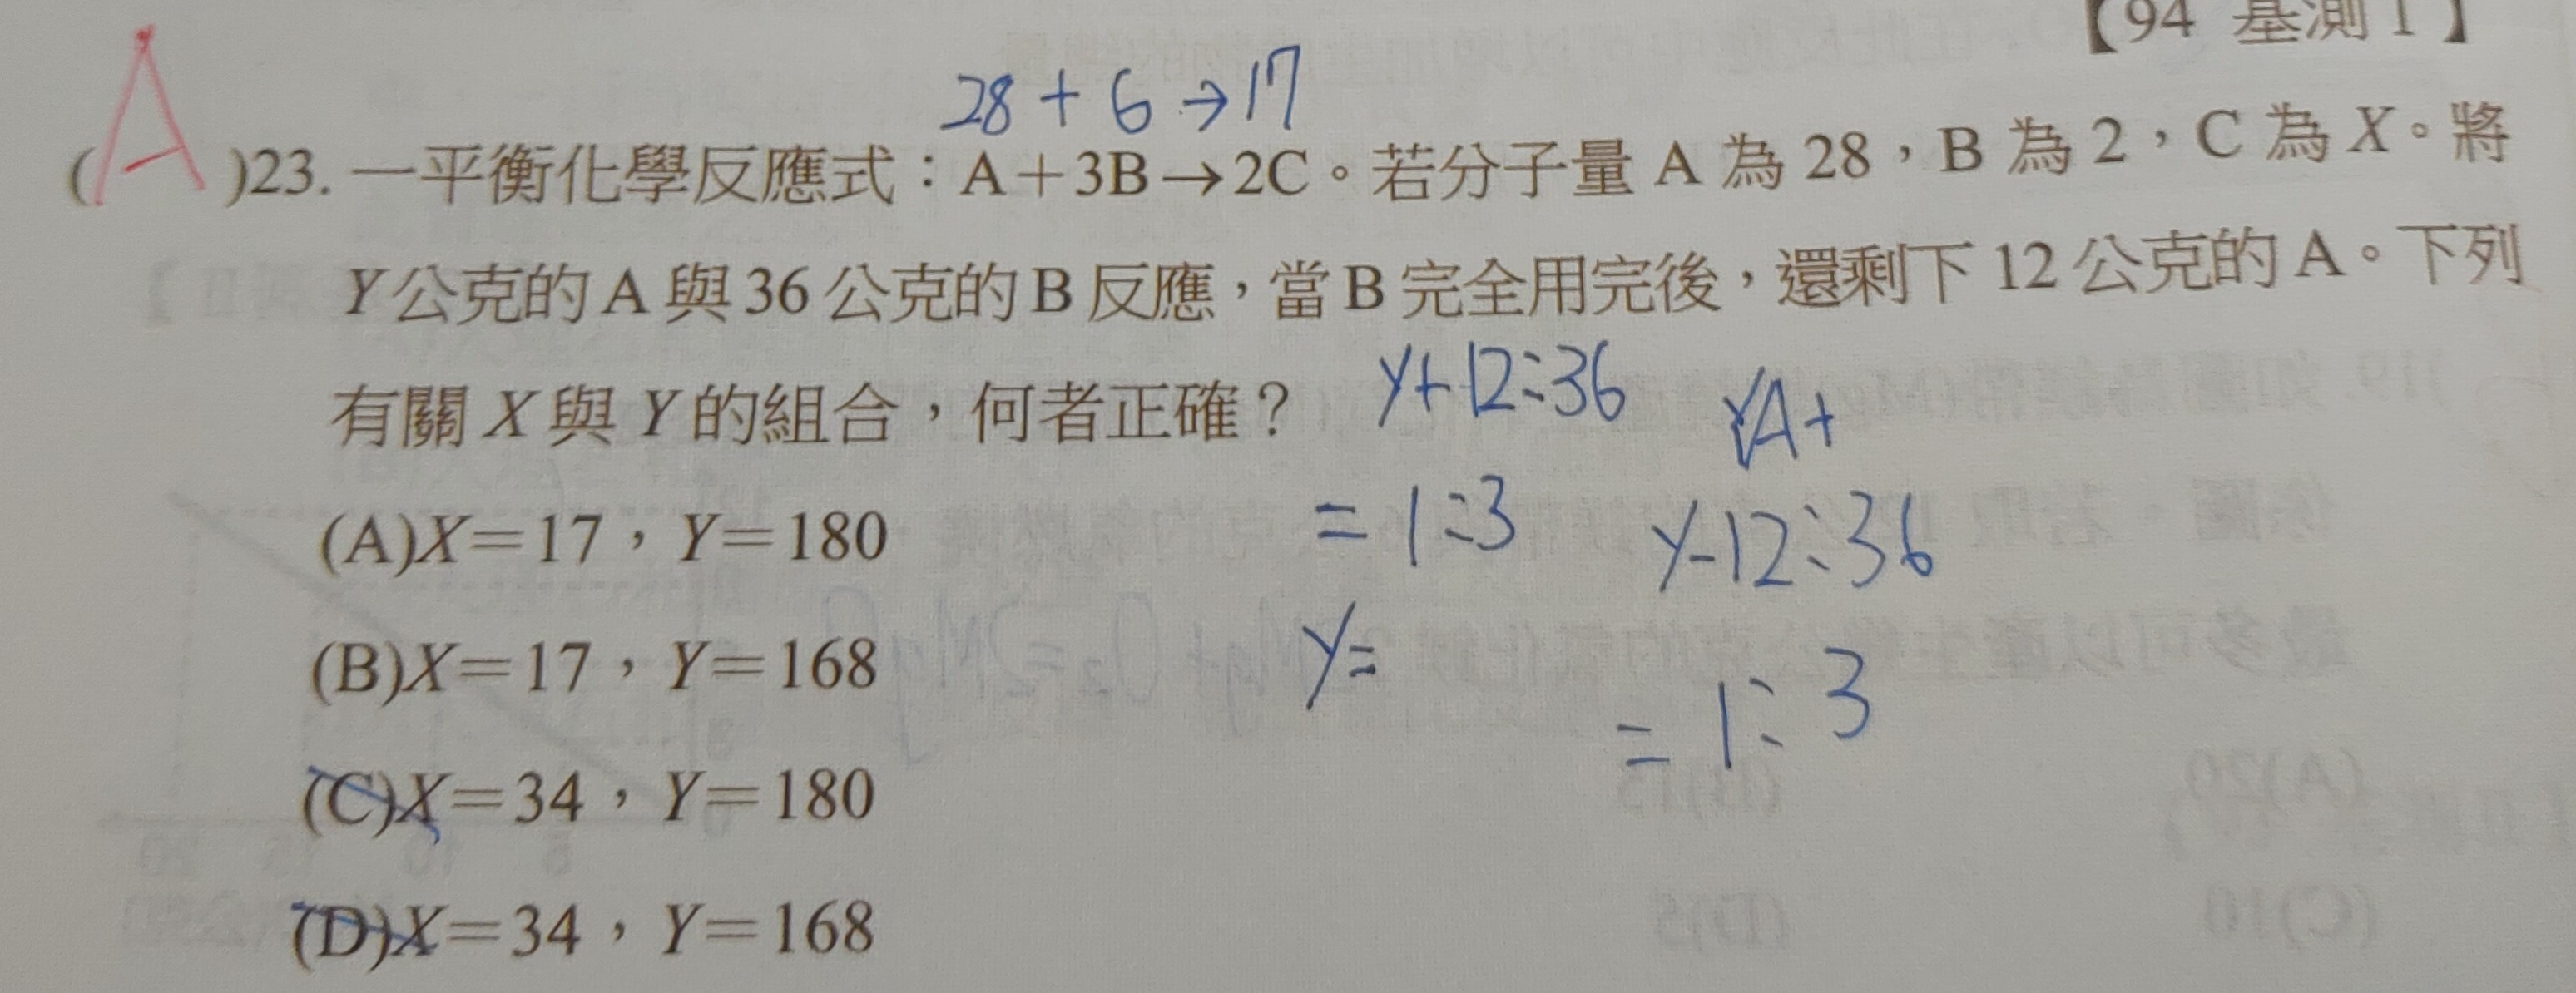 【94 基測 I】
28 + 6 → 17
(A)23. 一平衡化學反應式：A＋3B→2C。若分子量 A 為 28，B 為 2，C 為 X。將
Y 公克的 A 與 36 公克的 B 反應，當 B 完全用完後，還剩下 12 公克的 A。下列
有關 X 與 Y 的組合，何者正確？
y+12:36
= 1:3
y=
A+
y-12:36
= 1:3
(A)X＝17，Y＝180
(B)X＝17，Y＝168
(C)X＝34，Y＝180
(D)X＝34，Y＝168